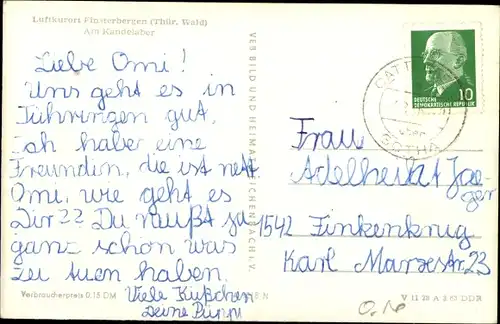 Luftkurort Finsterbergen (Thür. Wald)
Am Kandelaber
Liebe Omi!
Uns geht es in
Tühringen gut.
Ich habe eine
Freundin, die ist nett.
Omi, wie geht es
Dir?? Du mußt ja
ganz schön was
zu tuen haben.
Viele Küßchen
deine Puppi
Verbraucherpreis 0,15 DM
VEB BILD UND HEIMAT REICHENBACH I. V.
10
DEUTSCHE
DEMOKRATISCHE REPUBLIK
GOTHA
Frau
Adelheid Jae-
ger
1542 Finkenkrug
Karl Marxstr. 23
V 11 28 A 2 63 DDR